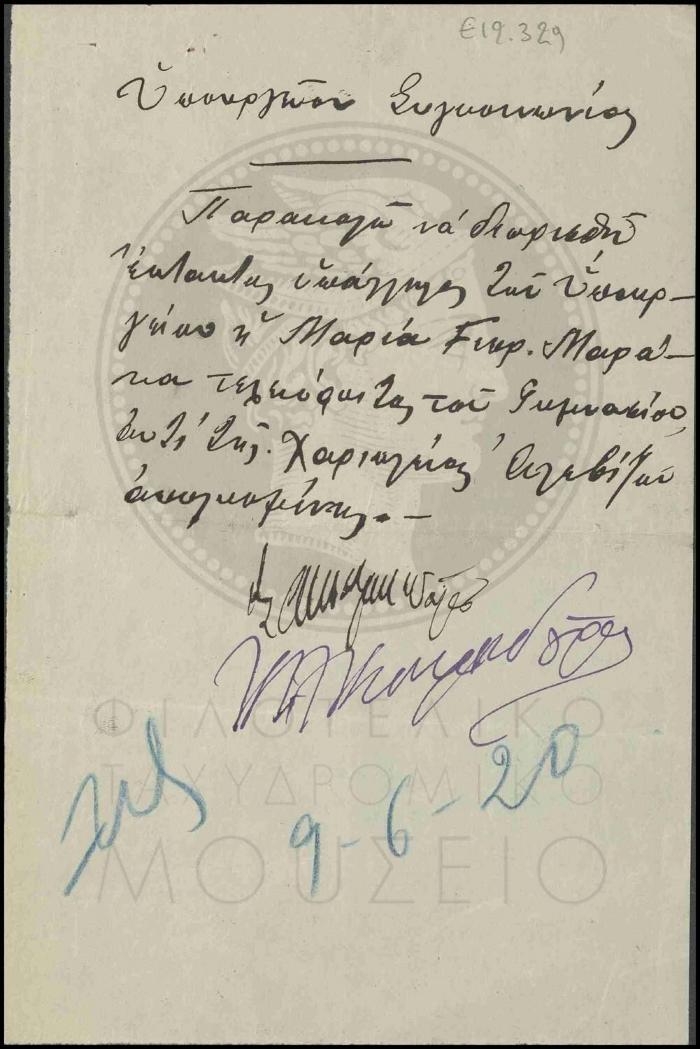 Ε12.329
Ὑπουργεῖον Συγκοινωνίας
Παρακαλῶ νά διορισθῇ
ἔκτακτος ὑπάλληλος τοῦ Ὑπουρ-
γείου ἡ Μαρία Γεωρ. Μαρά-
κα τελειόφοιτος τοῦ Γυμνασίου
ἀντί τῆς Χαρικλείας
ἀπολυομένης.—
9-6-20
ΦΙΛΟΤΕΛΙΚΟ
ΤΑΧΥΔΡΟΜΙΚΟ
ΜΟΥΣΕΙΟ